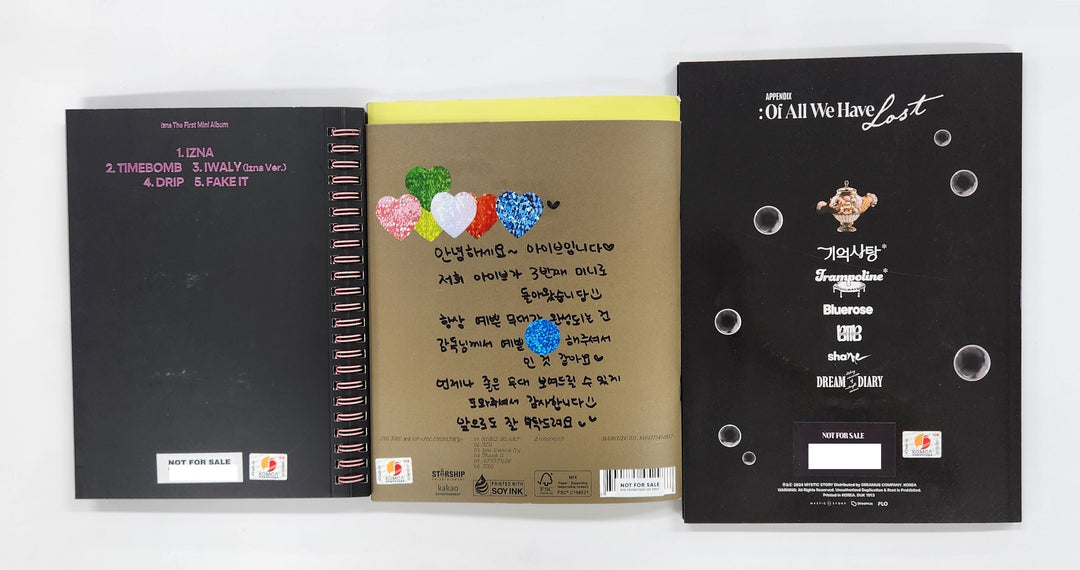 izna The First Mini Album
1. IZNA
2. TIMEBOMB 3. IWALY (izna Ver.)
4. DRIP 5. FAKE IT
NOT FOR SALE
KOMCA
안녕하세요~ 아이브입니다♡
저희 아이브가 3번째 미니로
돌아왔습니다
항상 예쁜 무대가 완성되는 건
감독님께서 예쁘 해주셔서
인 것 같아요♥
언제나 좋은 무대 보여드릴 수 있게
도와주셔서 감사합니다
앞으로도 잘 부탁드려요
STARSHIP
ENTERTAINMENT
kakao
ENTERTAINMENT
PRINTED WITH
SOY INK
FSC
MIX
FSC® C198621
NOT FOR SALE
FOR PROMOTION USE ONLY
APPENDIX
: Of All We Have Lost
기억사탕*
Trampoline*
Bluerose
shame
DREAM DIARY
NOT FOR SALE
KOMCA
2024 MYSTIC STORY Distributed by DREAMUS COMPANY. KOREA
WARNING: All Rights Reserved. Unauthorized Duplication & Rent is Prohibited.
Printed in KOREA. DUK 1913
MYSTIC STORY Dreamus FLO